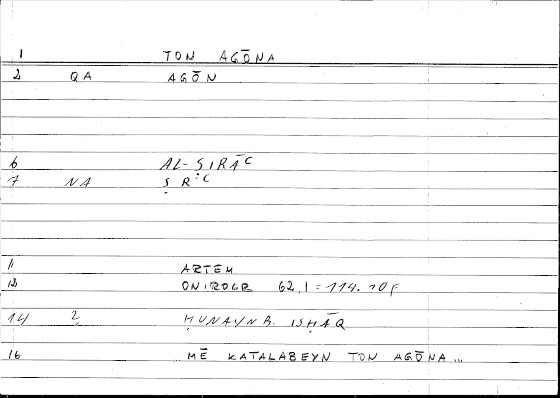 1 TON AGŌNA
2 QA AGŌN
6 AL-ṢIRĀʿ
7 NA ṢRʿ
11 ARTEM
12 ONIROCR 62,1 = 114.10f
14 2 ḤUNAYN B. ISḤĀQ
16 MĒ KATALABEYN TON AGŌNA...